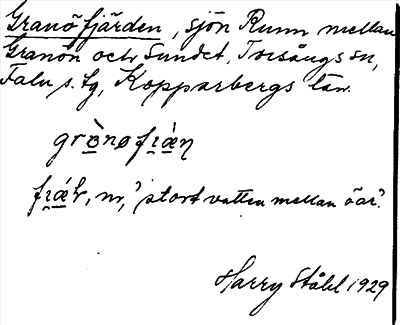 Granöfjärden, sjön Runn mellan
Granön och Sundet, Torsångs sn,
Falu s. tg, Kopparbergs län.
fi̯ǽr, nr, "stort vatten mellan öar".
Harry Ståhl 1929